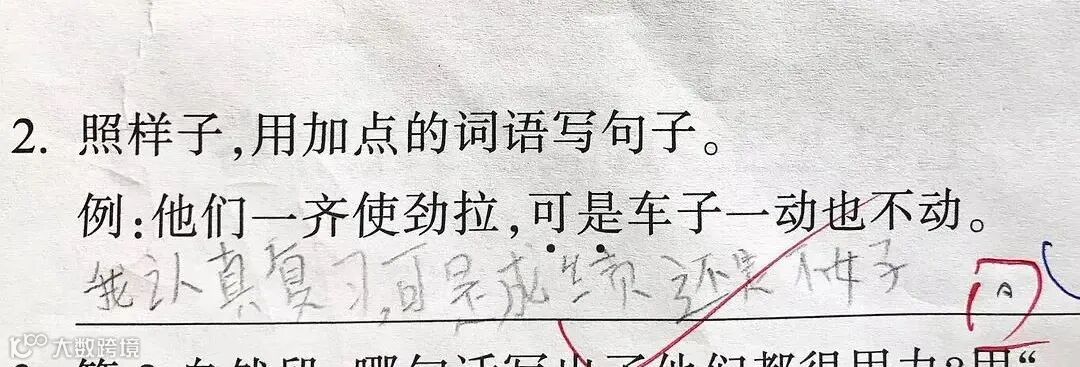 2. 照样子,用加点的词语写句子。
例:他们一齐使劲拉,可是车子一动也不动。
我认真复习,可是成绩还是不好
大数跨境